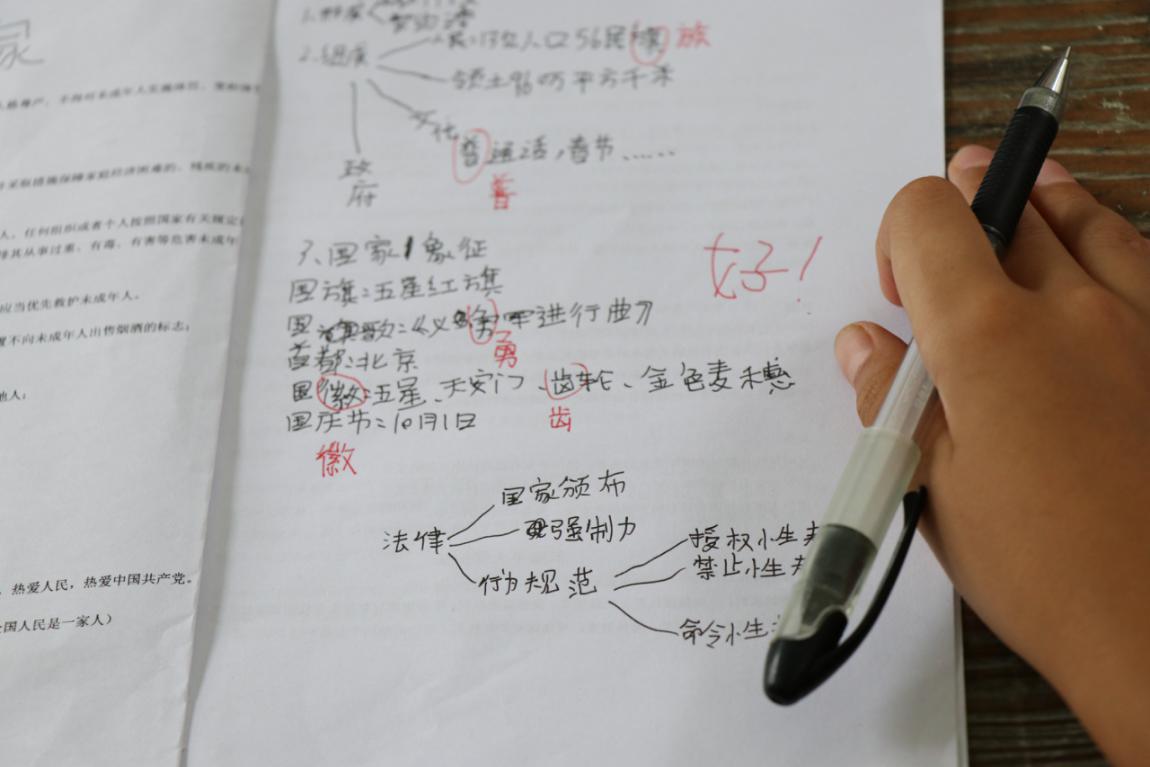 家
人格尊严，不得对未成年人实施体罚、变相体
采取措施保障家庭经济困难的、残疾的未
人，任何组织或者个人按照国家有关规定
其从事过重、有毒、有害等危害未成年
应当优先救护未成年人。
置不向未成年人出售烟酒的标志；
他人；
，热爱人民，热爱中国共产党。
全国人民是一家人）
2.组成
人口56民 族
领土960万平方千米
文化
普通话，春节……
普
政府
3、国家 象征
国旗：五星红旗
国 歌：《义 军进行曲》
勇
首都：北京
国徽：五星、天安门、齿轮、金色麦穗
国庆节：10月1日
齿
徽
好！
国家颁布
法律
强制力
行为规范
授权性
禁止性
命令性